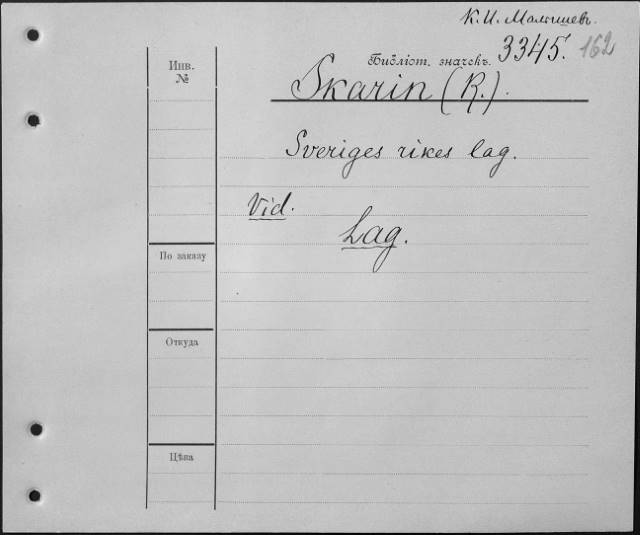 К. И. Малышевъ.
Библіот. значекъ. 3345. 162
Инв.
№
Skarin (R.).
Sveriges rikes lag.
Vid.
Lag.
По заказу
Откуда
Цѣна